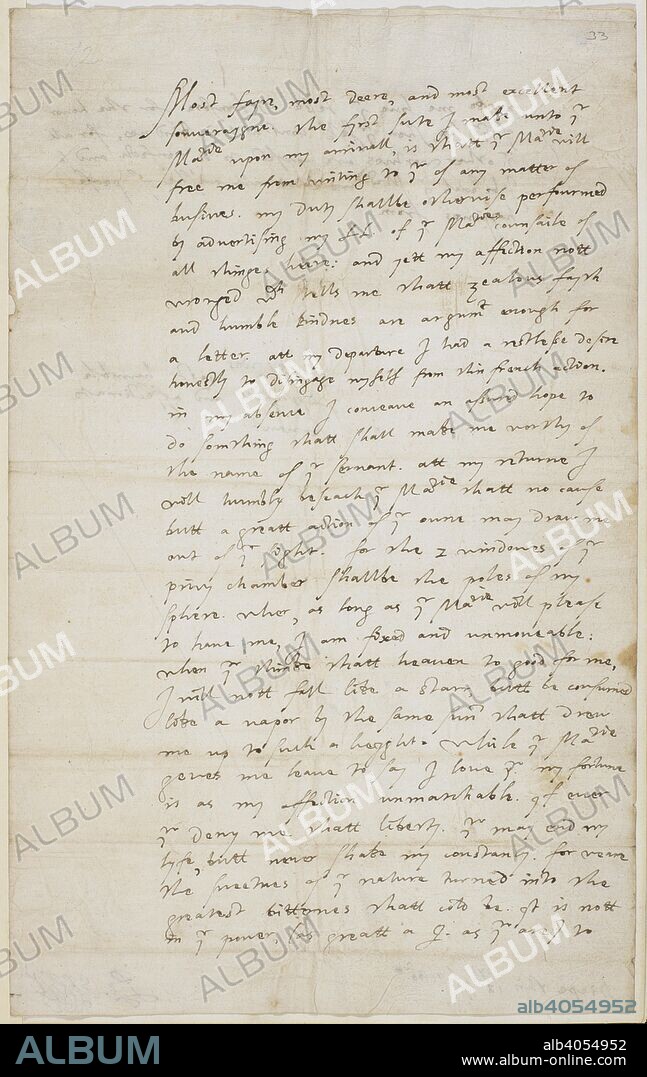 33
Most fayre, most deere, and most excellent
souveraigne. the first sute I make unto yr
Matie upon my arrivall, is thatt yr Matie will
free me from writing to yr of any matter of
busines. my duty shallbe otherwise perfourmed
by advertising my LL of yr Maties counsaile of
all thinges here: and yett my affection nott
wronged wch tells me thatt zealous fayth
and humble kindnes are argumt enough for
a letter. att my departure I had a restlesse desire
honestly to disingage myself from this french action.
in my absence I conceave an assured hope to
do somthing thatt shall make me worthy of
the name of yr servant. att my returne I
will humbly beseach yr Matie thatt no cause
butt a greatt action of yr owne may draw me
out of yr sight. for the 2 windowes of yr
privy chamber shallbe the poles of my
sphere. wher, as long as yr Matie will please
to have me, I am fixed and unmoveable:
when yr thinke thatt heaven to good for me,
I will nott fall like a starr, butt be consumed
like a vapor by the same sun thatt drew
me up to such a heyght. While yr Matie
geves me leave to say I love yr. my fortune
is as my affection unmatchable. yf ever
yr deny me thatt liberty. yr may end my
lyfe, butt never shake my constancy. for weare
the sweetnes of yr nature turned into the
greatest bitternes thatt cold be. yt is nott
in yr power, (as greatt a Q. as yr are) to
ALBUM
alb4054952
ALBUM
alb4054952
www.album-online.com